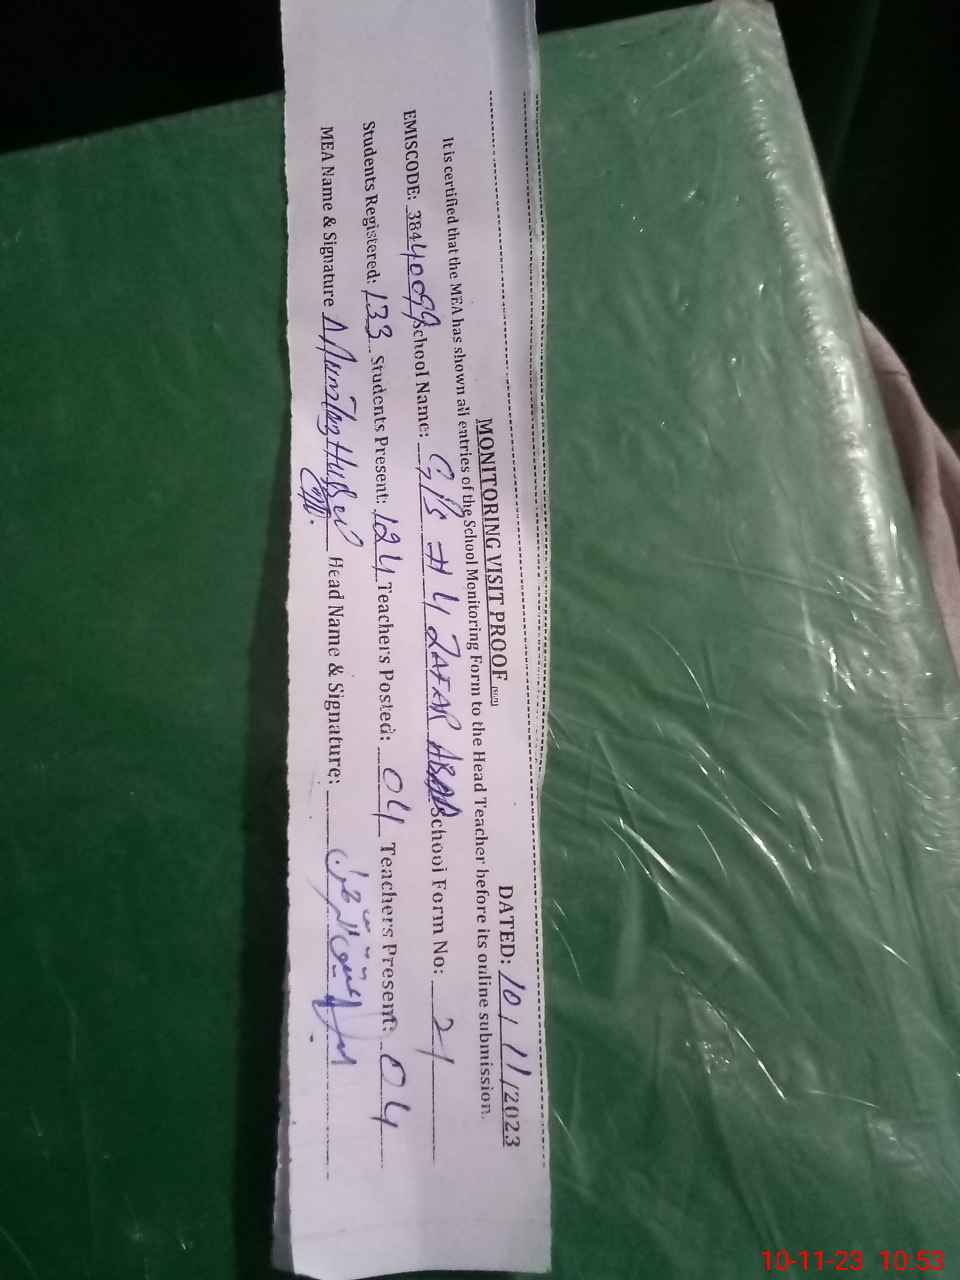 MONITORING VISIT PROOF DATED: 10/11/2023
It is certified that the MEA has shown all entries of the School Monitoring Form to the Head Teacher before its online submission.
EMISCODE: 38440099 School Name: GPS # 4 ZAFAR ABAD School Form No: 21
Students Registered: 133 Students Present: 124 Teachers Posted: 04 Teachers Present: 04
MEA Name & Signature Mumtaz Hussain Head Name & Signature:
10-11-23 10:53